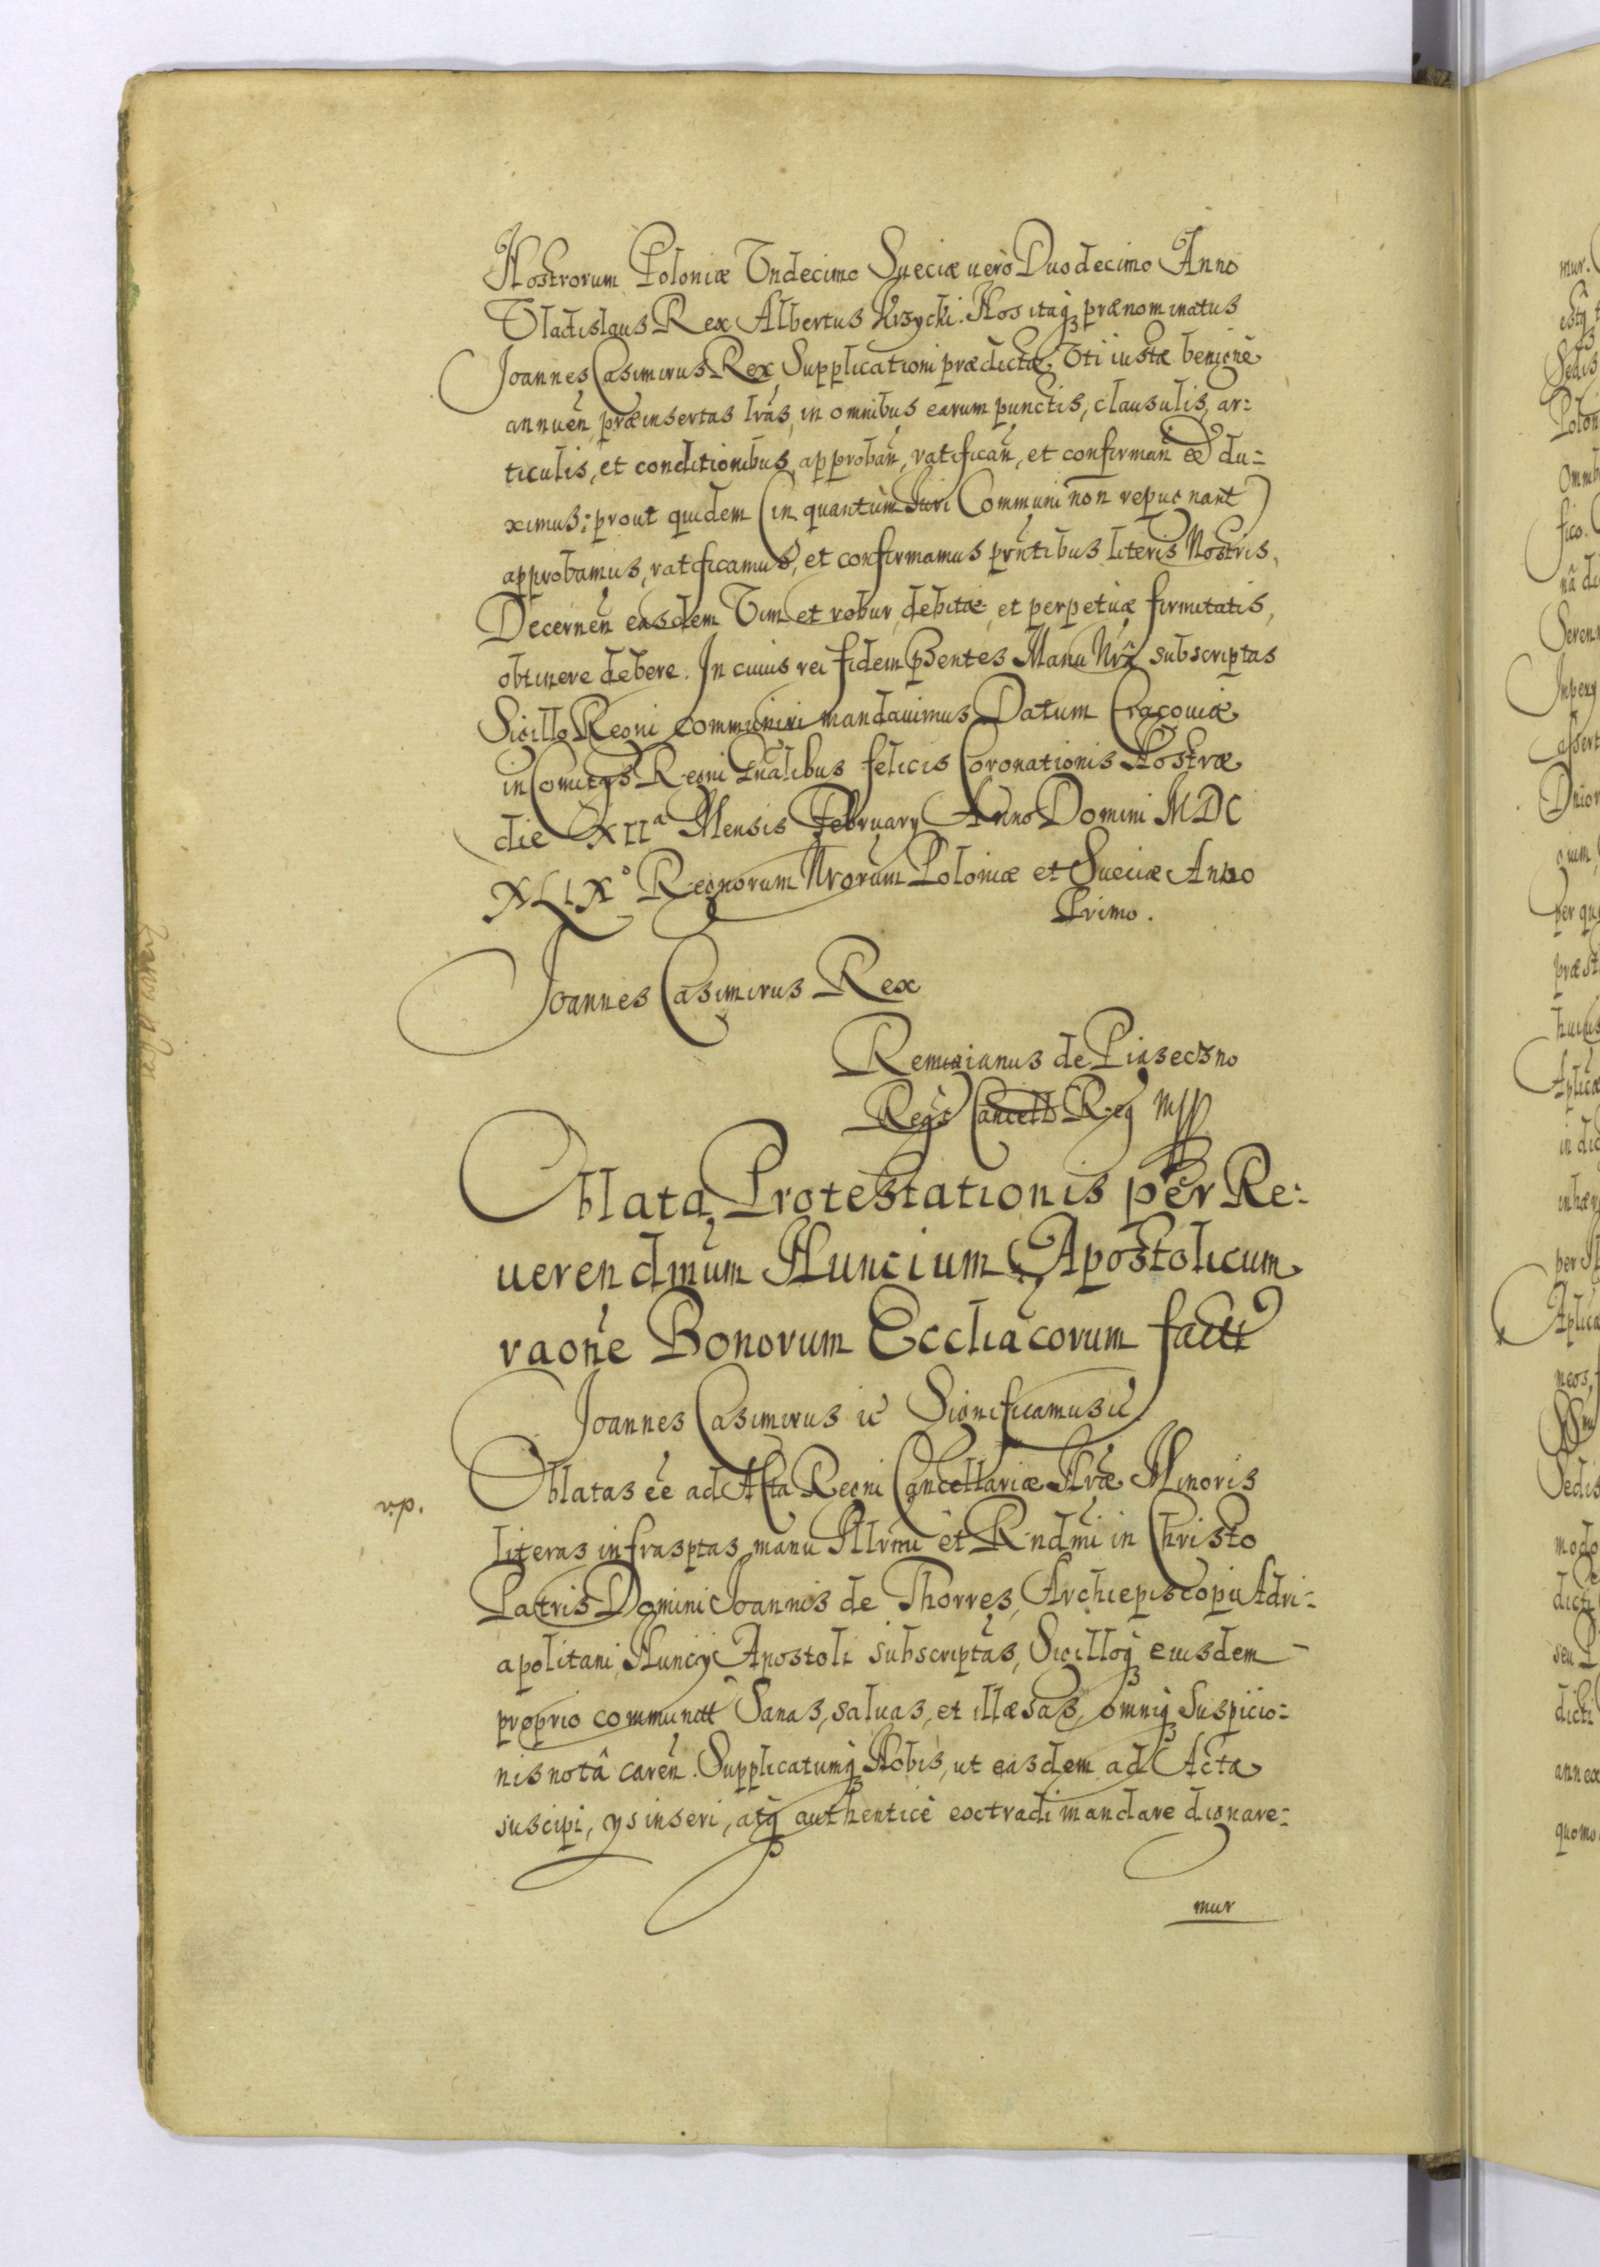 Nostrorum Poloniæ Undecimo Sueciæ uerò Duodecimo Anno
Vladislaus Rex Albertus Krzycki. Nos itaq₃ prænominatus
Joannes Casimirus Rex Supplicationi prædictæ, Uti iustæ benignè
annuen̄, præinsertas lrās, in omnibus earum punctis, clausulis, ar:
ticulis, et conditionibus approban̄, ratifican̄, et confirman̄ eē du:
ximus: prout quidem (in quantùm Iuri Communi non repugnant)
approbamus, ratificamus, et confirmamus prn̄tibus literis Nostris,
Decernen̄ easdem Vim et robur, debitæ, et perpetuæ firmitatis,
obtinere debere. In cuius rei fidem p̄sentes Manu Nrā subscriptas
Sigillo Regni communiri mandauimus Datum Cracouiæ
in Comitijs Regni Gnālibus felicis Coronationis Nostræ
die XIIᵃ Mensis February Anno Domini MDC
XLIX° Regnorum Nrorum Poloniæ et Sueciæ Anno
Primo.
Joannes Casimirus Rex
Remigianus de Piaseczno
Regēs Cancell̄ Reg mpp
Oblata Protestationis per Re:
uerendmūm Nuncium Apostolicum
raonē Bonorum Eccliācorum factæ
Joannes Casimirus ic Significamus ic
v.p.
Oblatas eē ad Acta Regni Cancellariæ Nræ Minoris
literas infrasptas manu Illrmi et Rndmī in Christo
Patris Domini Joannis de Thorres, Archiepiscopi Adri:
apolitani, Nuncij Apostoli subscriptas, Sigilloq₃ eiusdem
proprio communitt̄ Sanas, saluas, et illæsas, omniq₃ suspicio:
nis notâ caren̄. Supplicatumq₃ Nobis, ut easdem ad Acta
suscipi, ijs inseri, atq₃ authenticè extradi mandare dignare:
mur